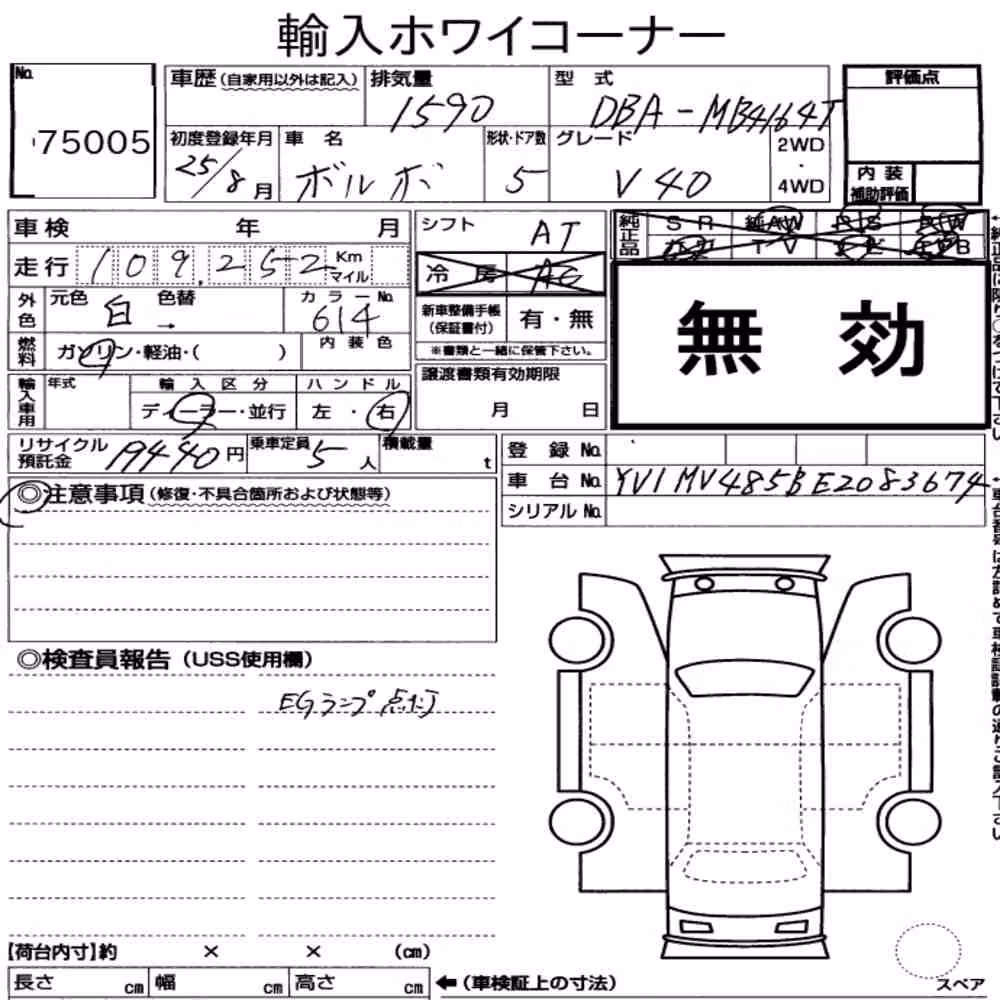 輸入ホワイコーナー
No.
75005
車歴(自家用以外は記入) 排気量 1590 型式 DBA-MB4164T
初度登録年月 25/8月 車名 ボルボ 形状・ドア数 5 グレード V40 2WD・4WD
評価点
内装補助評価
車検 年 月
走行 109,252 Km マイル
外色 元色 白 色替 → カラーNo. 614
燃料 ガソリン・軽油・( ) 内装色
輸入車用 年式 輸入区分 ディーラー・並行 ハンドル 左・右
リサイクル預託金 19440円 乗車定員 5人 積載量 t
シフト AT
冷房 AC
新車整備手帳(保証書付) 有・無
※書類と一緒に保管下さい。
譲渡書類有効期限
月 日
純正品 SR 純AW
TV
無効
登録No.
車台No. YV1MV485BE2083674
シリアルNo.
◎注意事項(修復・不具合箇所および状態等)
◎検査員報告(USS使用欄)
EGランプ点灯
【荷台内寸】約 × × (cm)
長さ cm 幅 cm 高さ cm ←(車検証上の寸法)
スペア